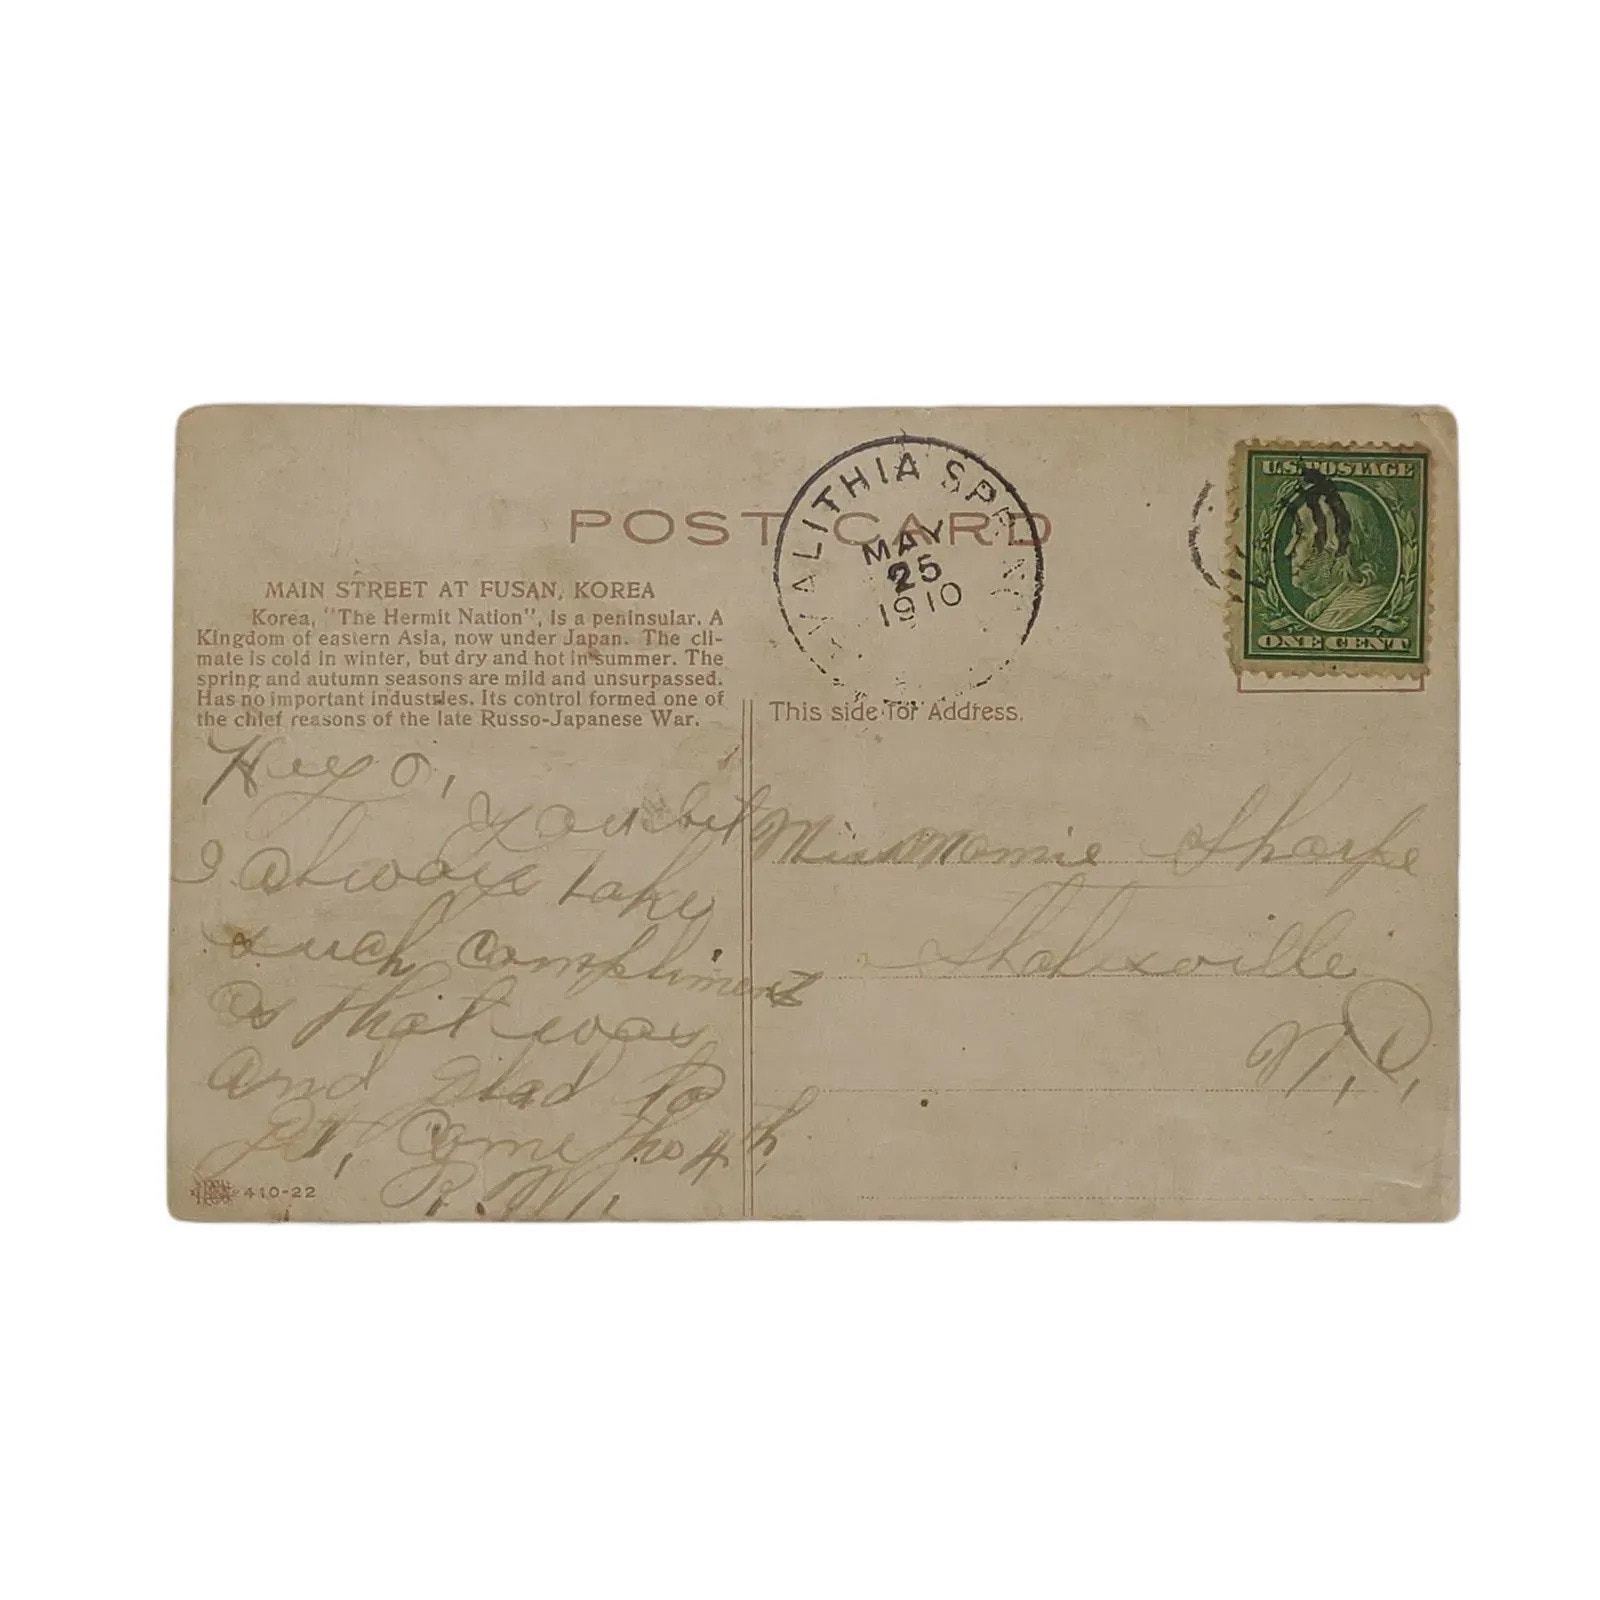 POST CARD
VALITHIA SPRING
MAY
25
1910
U.S. POSTAGE
ONE CENT
MAIN STREET AT FUSAN, KOREA
Korea, "The Hermit Nation", is a peninsular. A
Kingdom of eastern Asia, now under Japan. The cli-
mate is cold in winter, but dry and hot in summer. The
spring and autumn seasons are mild and unsurpassed.
Has no important industries. Its control formed one of
the chief reasons of the late Russo-Japanese War.
This side for Address.
You bet
I always take
such compliment
as that was
and glad to
get, Come the 4th,
R. M.
410-22
Miss Mamie Sharpe
Statesville
N, C,